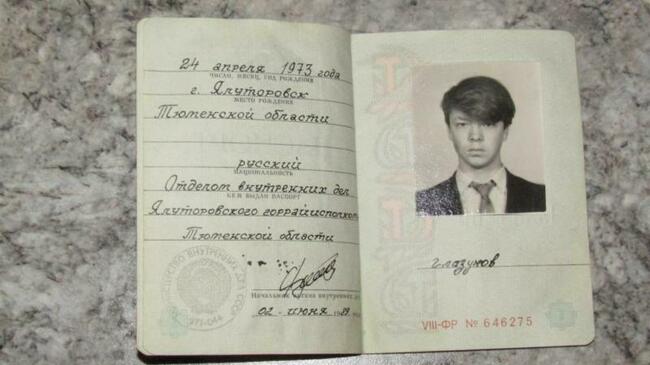 24 апреля 1973 года
ЧИСЛО, МЕСЯЦ, ГОД РОЖДЕНИЯ
г. Ялуторовск
МЕСТО РОЖДЕНИЯ
Тюменской области
русский
НАЦИОНАЛЬНОСТЬ
Отделом внутренних дел
КЕМ ВЫДАН ПАСПОРТ
Ялуторовского горрайисполком
Тюменской области
МИНИСТЕРСТВО ВНУТРЕННИХ ДЕЛ СССР
Начальник органа внутренних
02 июня 1989
Глазунов
VIII-ФР № 646275